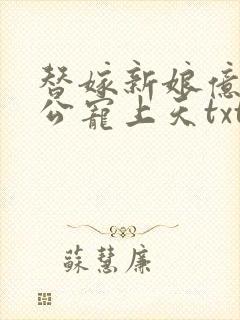 替嫁新娘億
公寵上天txt
蘇慧廉